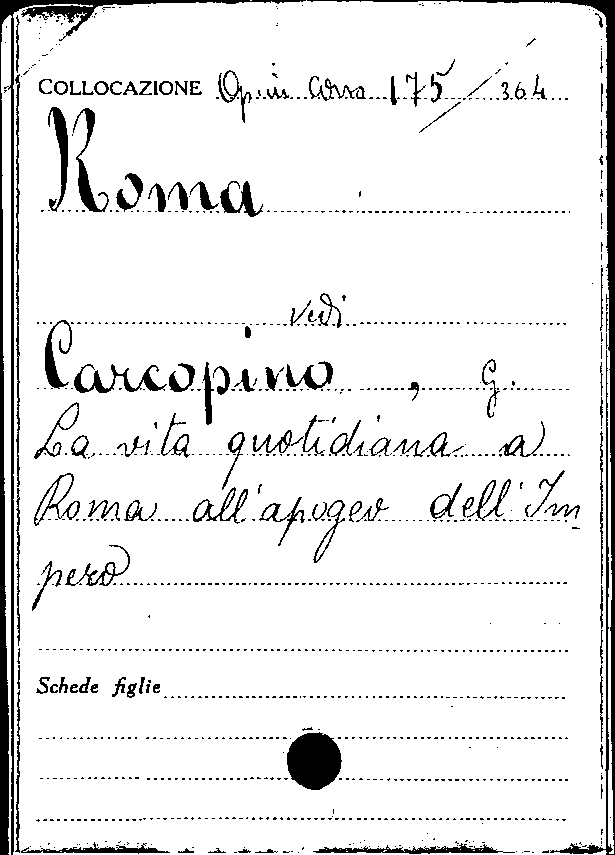 COLLOCAZIONE Op. in corso 175 / 364
Roma
vedi
Carcopino, G.
La vita quotidiana a
Roma all'apogeo dell'Im-
pero
Schede figlie